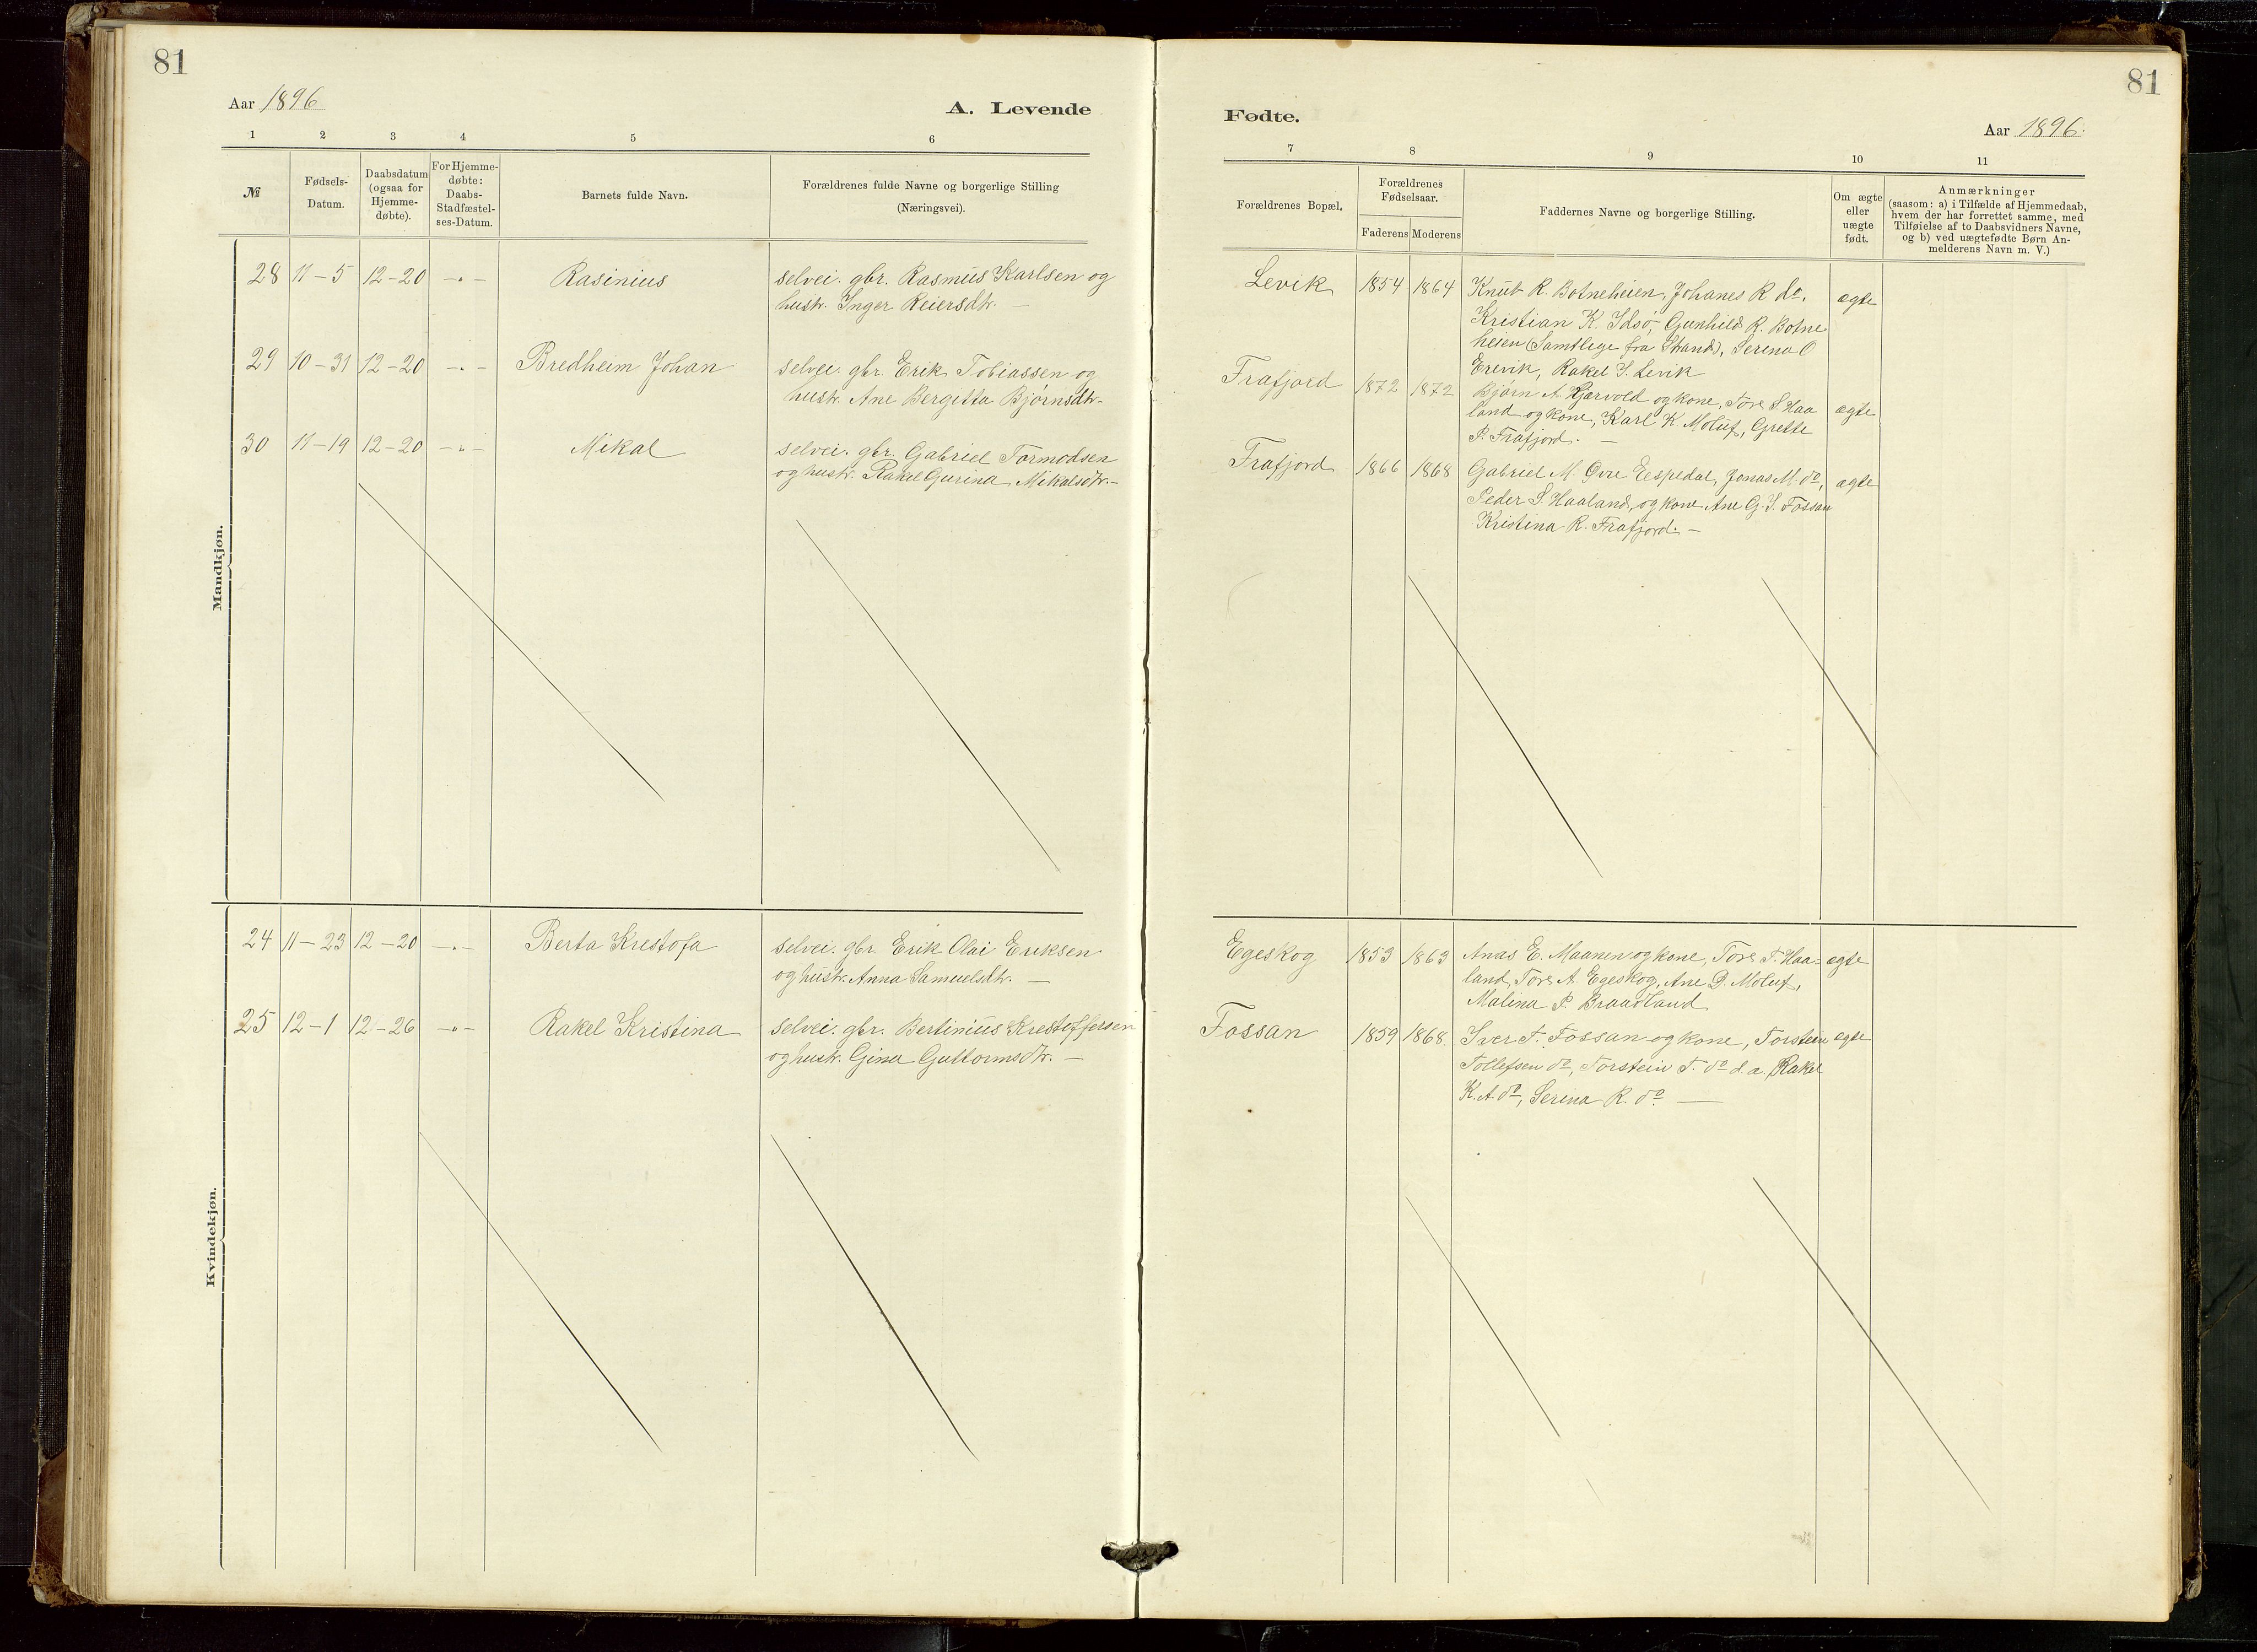 81
Aar 1896
A. Levende
1 2 3 4 5 6
№
Fødsels-
Datum.
Daabsdatum
(ogsaa for
Hjemme-
døbte).
For Hjemme-
døbte:
Daabs-
Stadfæstel-
ses-Datum.
Barnets fulde Navn.
Forældrenes fulde Navne og borgerlige Stilling
(Næringsvei).
Mandkjøn.
28 11-5 12-20 -"- Rasinius selvei. gbr. Rasmus Karlsen og
hustr. Inger Reiersdtr. —
29 10-31 12-20 -"- Bredheim Johan selvei. gbr. Erik Tobiassen og
hustr. Ane Bergitta Bjørnsdtr-
30 11-19 12-20 -"- Mikal selvei. gbr. Gabriel Tormodsen
og hustr. Rakel Gurina Mikalsdtr.-
Kvindekjøn.
24 11-23 12-20 -"- Berta Krestofa selvei. gbr. Erik Olai Eriksen
og hustr. Anna Samuelsdtr. —
25 12-1 12-26 -"- Rakel Kristina selvei. gbr. Bertinius Krestoffersen
og hustr. Gina Guttormsdtr. —
81
Fødte.
Aar 1896.
7 8 9 10 11
Forældrenes Bopæl.
Forældrenes
Fødselsaar.
Faderens Moderens
Faddernes Navne og borgerlige Stilling.
Om ægte
eller
uægte
født.
Anmærkninger
(saasom: a) i Tilfælde af Hjemmedaab,
hvem der har forrettet samme, med
Tilføielse af to Daabsvidners Navne,
og b) ved uægtefødte Børn An-
melderens Navn m. V.)
Levik 1854 1864 Knut R. Botneheien, Johanes R do, ægte
Kristian K. Idsø, Gunhild R. Botne
heien (Samtlige fra Strand), Serina O
Erevik, Rakel S. Levik
Frafjord 1872 1872 Bjørn A. Gjarvold og kone, Tore S Haa ægte
land og kone, Karl K Moluf, Grette
P. Frafjord. —
Frafjord 1866 1868 Gabriel M Øvre Eespedal, Jonas M. do, ægte
Peder S. Haaland, og kone Ane G. I. Fossan
Kristina R. Frafjord. —
Egeskog 1853 1863 Anas E. Maanen og kone, Tore T. Haa- ægte
land, Tore A. Egeskog, Ane D. Moluf,
Malina P. Braadland
Fossan 1859 1868. Iver T. Fossan og kone, Torstein ægte
Tollefsen do, Torstein T. do d. a. Rakel
K. A. do, Serina R. do —